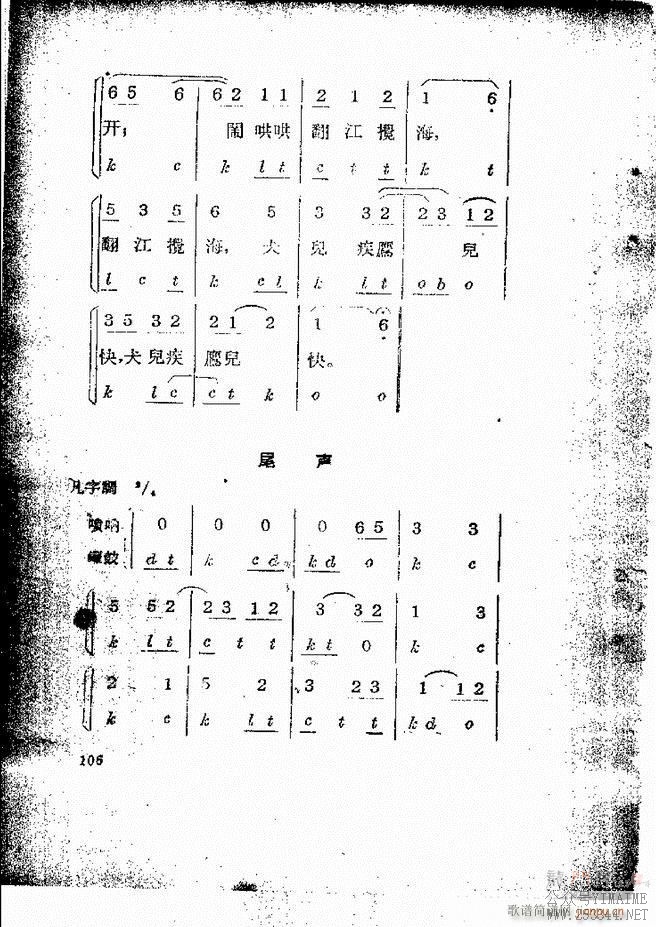 6 5 6 6 2 1 1 2 1 2 1 6
开； 鬧哄哄 翻江攪 海，
k c k l t c t t k t
5 3 5 6 5 3 3 2 2 3 1 2
翻江攪 海，犬 兒 疾鷹 兒
l c t k c l k l t o b o
3 5 3 2 2 1 2 1 6
快，犬兒疾 鷹兒 快。
k l c c t k o o
尾 声
凡字調 2/4
嗩吶 0 0 0 0 6 5 3 3
d t k c d k d o k c
5 5 2 2 3 1 2 3 3 2 1 3
k l t c t t k t 0 k c
2 1 5 2 3 2 3 1 1 2
k c k l t c t t k d o
106
歌谱简谱网
公众号YIMAIME
www.253344.NET
jianpu.cn